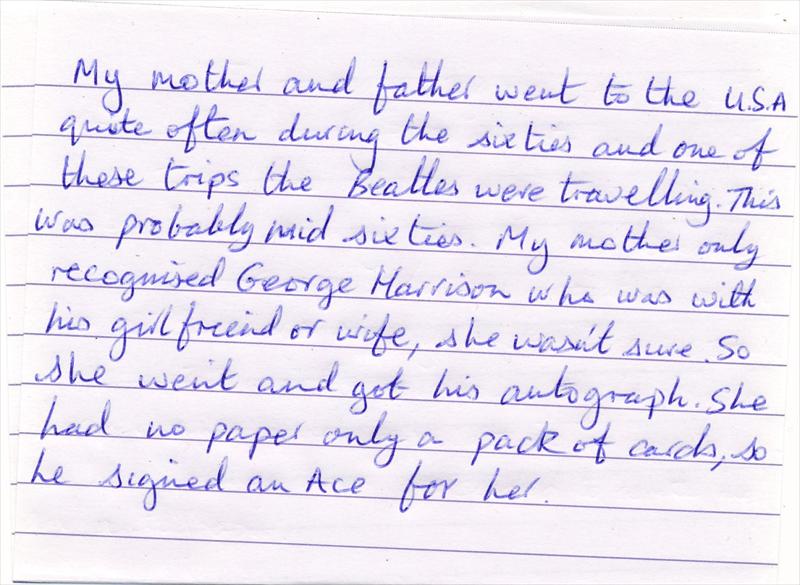 My mother and father went to the U.S.A
quite often during the sixties and one of
these trips the Beatles were travelling. This
was probably mid sixties. My mother only
recognised George Harrison who was with
his girlfriend or wife, she wasn't sure. So
she went and got his autograph. She
had no paper only a pack of cards, so
he signed an Ace for her.